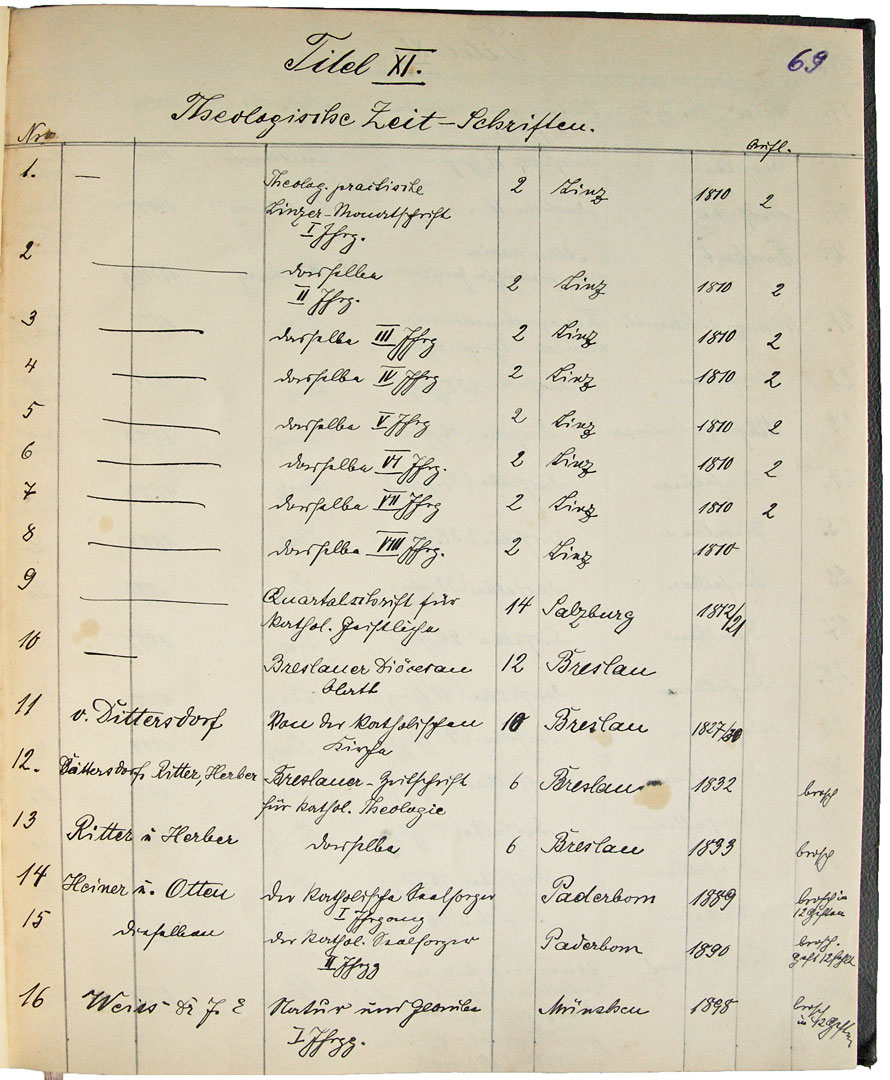 69
Titel XI.
Theologische Zeit-Schriften.
Nro Aufl.
1. — Theolog. practische 2 Linz 1810 2
Linzer-Monatschrift
I Jhrg.
2 — dasselbe 2 Linz 1810 2
II Jhrg.
3 — dasselbe III Jhrg 2 Linz 1810 2
4 — dasselbe IV Jhrg 2 Linz 1810 2
5 — dasselbe V Jhrg 2 Linz 1810 2
6 — dasselbe VI Jhrg. 2 Linz 1810 2
7 — dasselbe VII Jhrg 2 Linz 1810 2
8 — dasselbe VIII Jhrg. 2 Linz 1810
9 — Quartalschrift für 14 Salzburg 1812/21
kathol. Geistliche
10 — Breslauer Diöcesan 12 Breslau
blatt
11 v. Dittersdorf Von der katholischen 10 Breslau 1827/30
Kirche
12. Dittersdorf, Ritter, Herber Breslauer-Zeitschrift 6 Breslau 1832 brosch
für kathol. Theologie
13 Ritter u Herber dasselbe 6 Breslau 1833 brosch
14 Heiner u. Otten Der katholische Seelsorger Paderborn 1889 brosch in
I Jhrgang 12 Heften
15 dieselben der kathol. Seelsorger Paderborn 1890 brosch.
II Jhrgg Heft 12 fehlt
16 Weiss Dr J. E Natur und Glaube München 1898 brosch
I Jhrgg. in 12 Heften